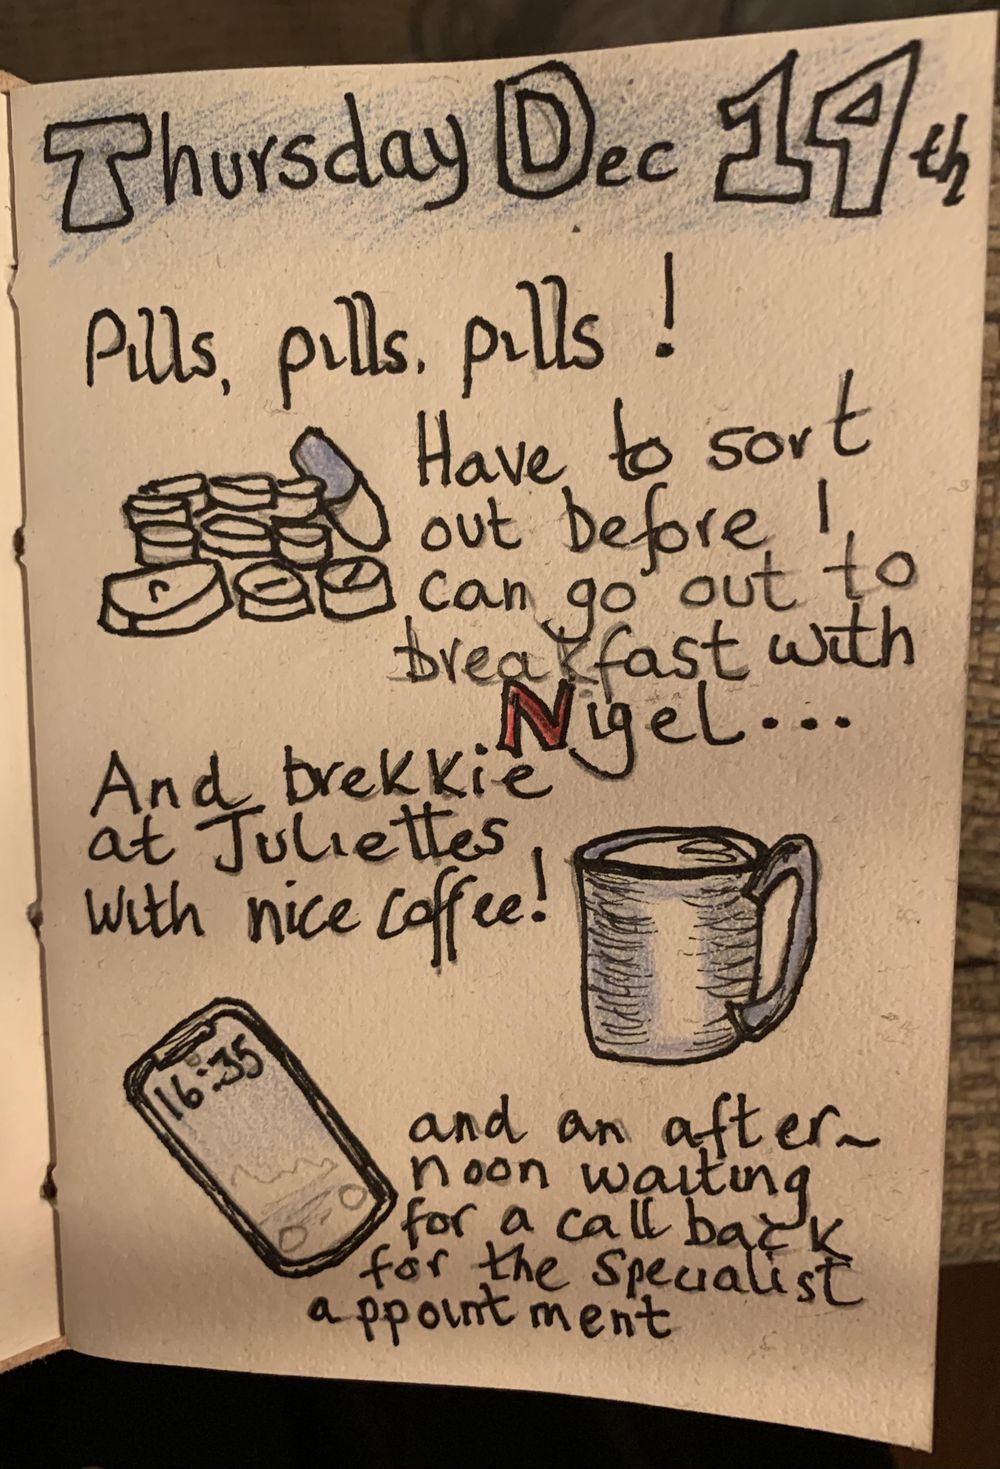 Thursday Dec 14th
Pills, pills. pills !
Have to sort
out before I
can go out to
breakfast with
Nigel...
And brekkie
at Juliettes
with nice coffee!
16:35
and an after~
noon waiting
for a call back
for the specialist
appointment